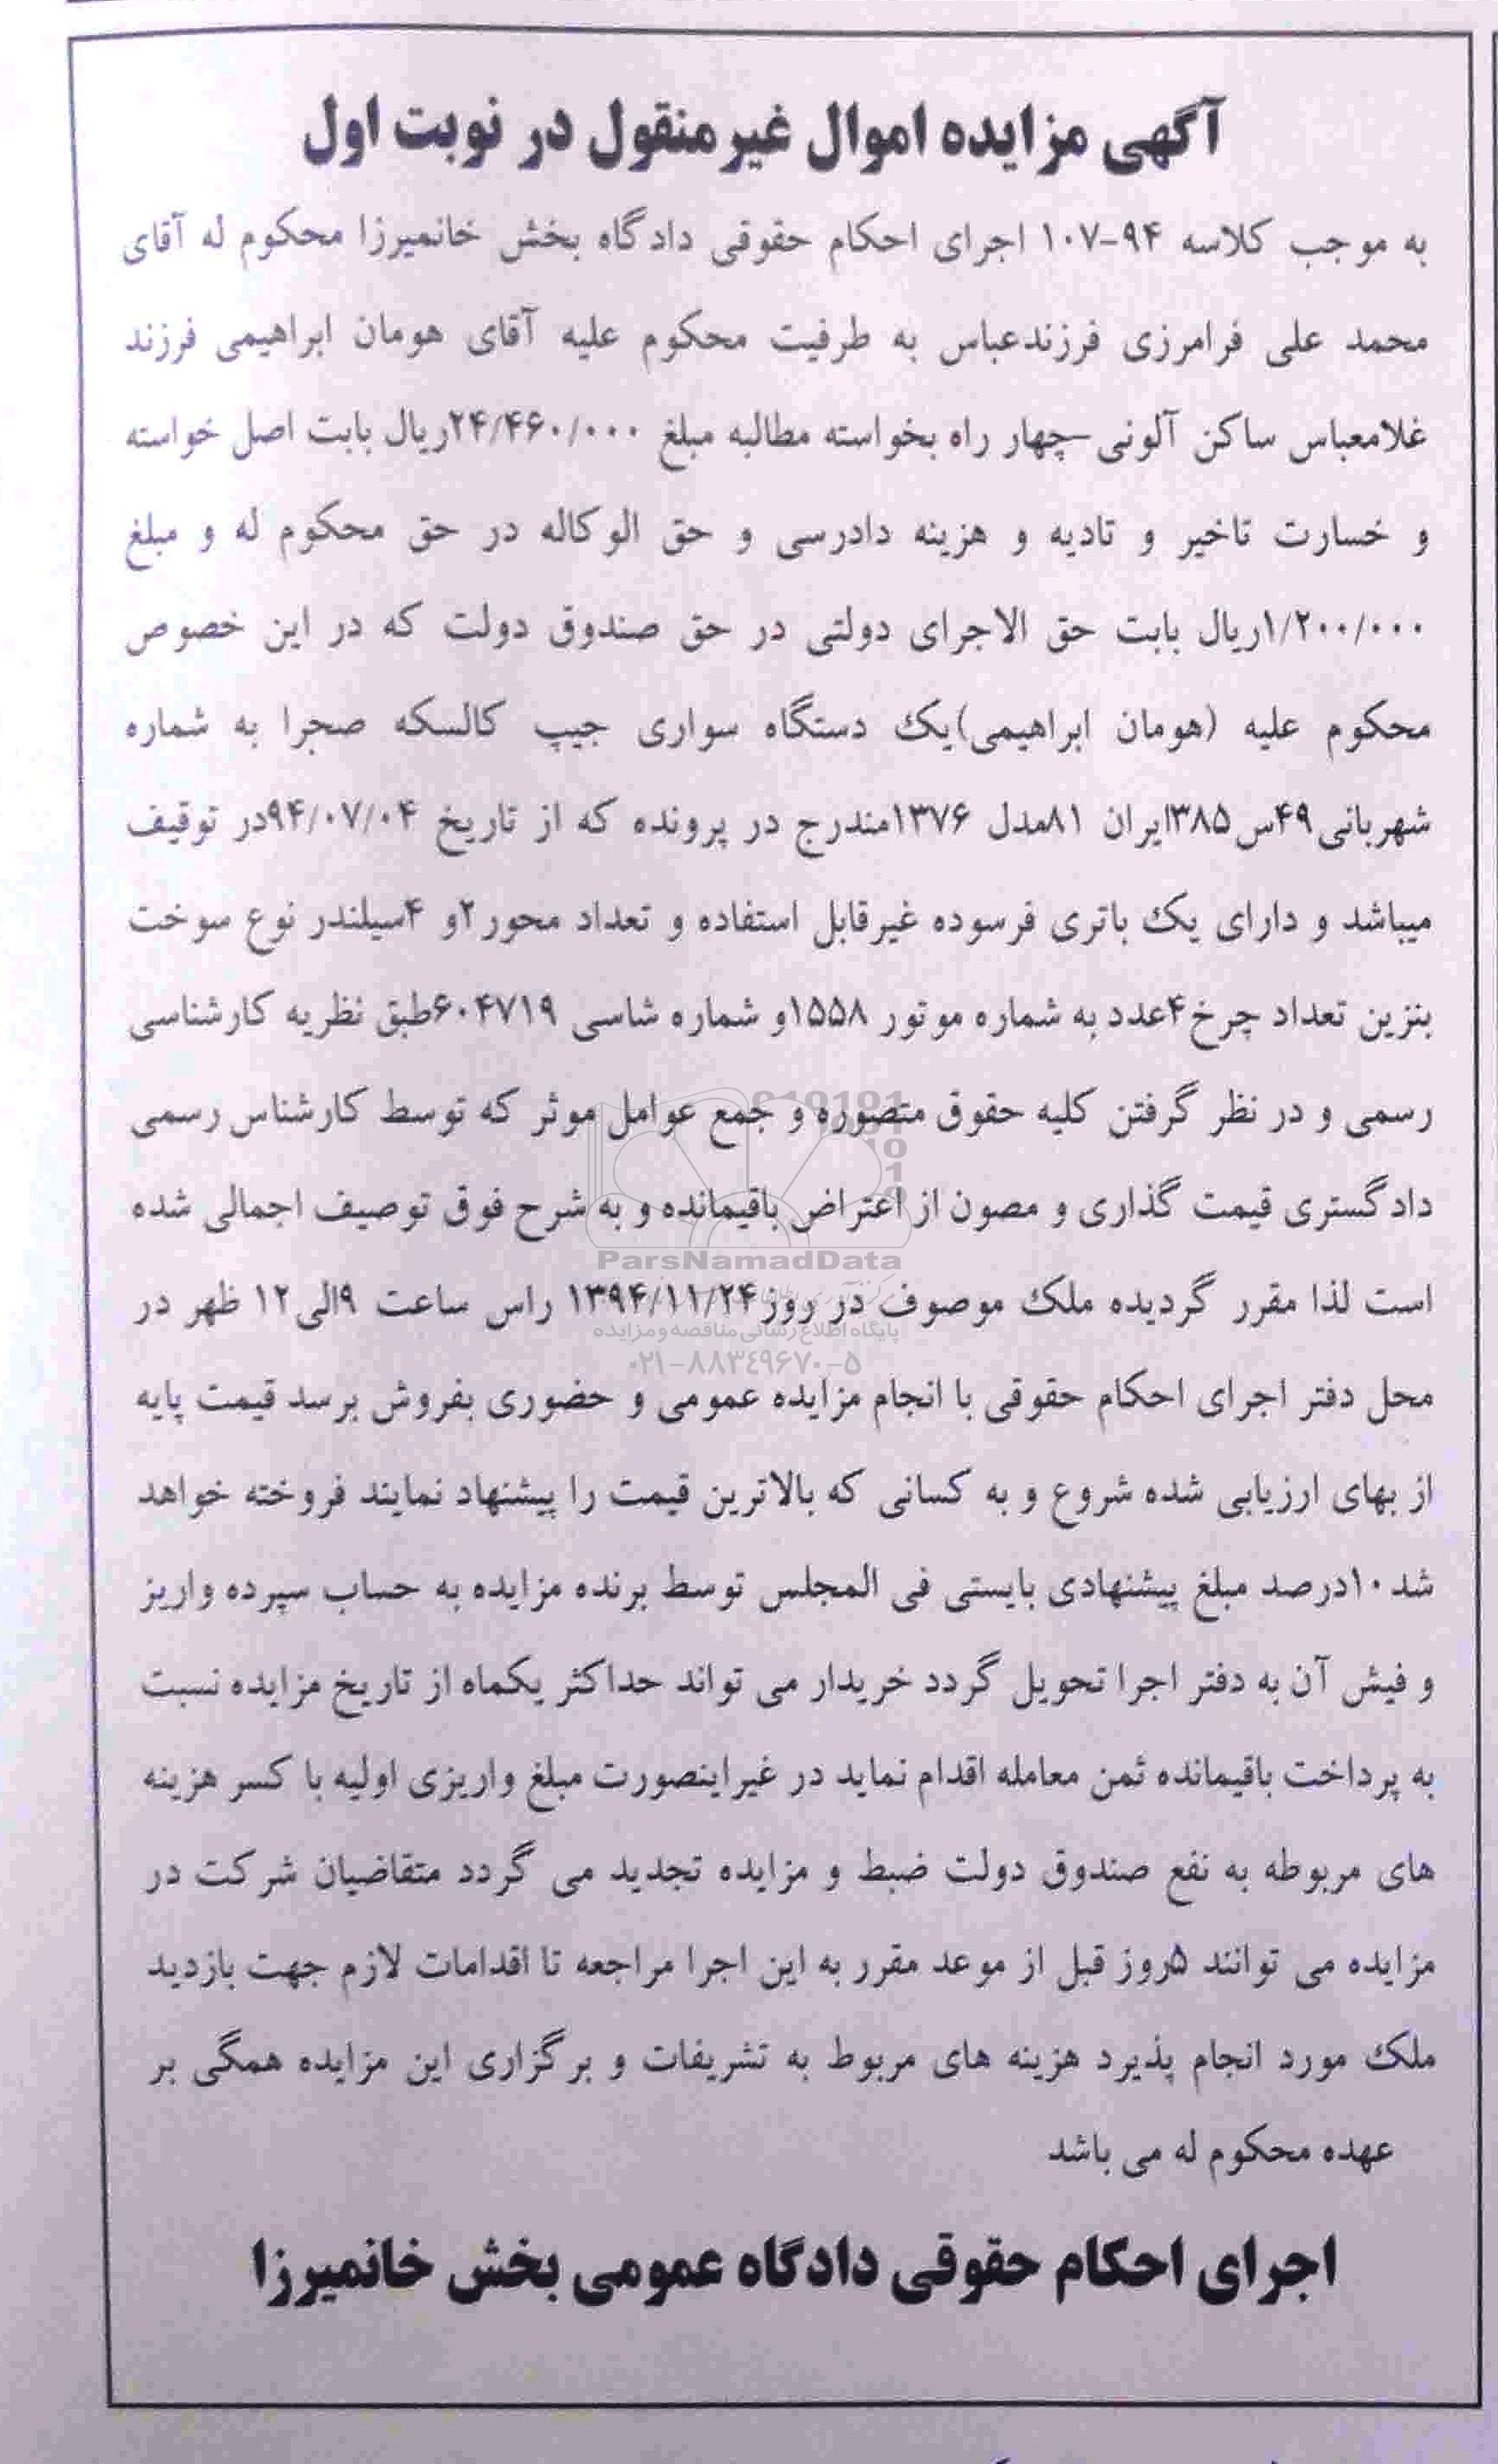 آگهی مزایده اموال غیرمنقول در نوبت اول
به موجب کلاسه ۹۴-۱۰۷ اجرای احکام حقوقی دادگاه بخش خانمیرزا محکوم له آقای
محمد علی فرامرزی فرزندعباس به طرفیت محکوم علیه آقای هومان ابراهیمی فرزند
غلامعباس ساکن آلونی-چهار راه بخواسته مطالبه مبلغ ۲۴/۴۶۰/۰۰۰ریال بابت اصل خواسته
و خسارت تاخیر و تادیه و هزینه دادرسی و حق الوکاله در حق محکوم له و مبلغ
۱/۲۰۰/۰۰۰ریال بابت حق الاجرای دولتی در حق صندوق دولت که در این خصوص
محکوم علیه (هومان ابراهیمی)یک دستگاه سواری جیپ کالسکه صجرا به شماره
شهربانی۴۹س۳۸۵ایران ۸۱مدل ۱۳۷۶مندرج در پرونده که از تاریخ ۹۴/۰۷/۰۴در توقیف
میباشد و دارای یک باتری فرسوده غیرقابل استفاده و تعداد محور۲و ۴سیلندر نوع سوخت
بنزین تعداد چرخ۴عدد به شماره موتور ۱۵۵۸و شماره شاسی ۶۰۴۷۱۹طبق نظریه کارشناسی
رسمی و در نظر گرفتن کلیه حقوق متصوره و جمع عوامل موثر که توسط کارشناس رسمی
دادگستری قیمت گذاری و مصون از اعتراض باقیمانده و به شرح فوق توصیف اجمالی شده
ParsNamadData
است لذا مقرر گردیده ملک موصوف در روز۱۳۹۴/۱۱/۲۴ راس ساعت ۹الی۱۲ ظهر در
پایگاه اطلاع رسانی مناقصه و مزایده
۰۲۱-۸۸۳۴۹۶۷۰-۵
محل دفتر اجرای احکام حقوقی با انجام مزایده عمومی و حضوری بفروش برسد قیمت پایه
از بهای ارزیابی شده شروع و به کسانی که بالاترین قیمت را پیشنهاد نمایند فروخته خواهد
شد۱۰درصد مبلغ پیشنهادی بایستی فی المجلس توسط برنده مزایده به حساب سپرده واریز
و فیش آن به دفتر اجرا تحویل گردد خریدار می تواند حداکثر یکماه از تاریخ مزایده نسبت
به پرداخت باقیمانده ثمن معامله اقدام نماید در غیراینصورت مبلغ واریزی اولیه با کسر هزینه
های مربوطه به نفع صندوق دولت ضبط و مزایده تجدید می گردد متقاضیان شرکت در
مزایده می توانند ۵روز قبل از موعد مقرر به این اجرا مراجعه تا اقدامات لازم جهت بازدید
ملک مورد انجام پذیرد هزینه های مربوط به تشریفات و برگزاری این مزایده همگی بر
عهده محکوم له می باشد
اجرای احکام حقوقی دادگاه عمومی بخش خانمیرزا